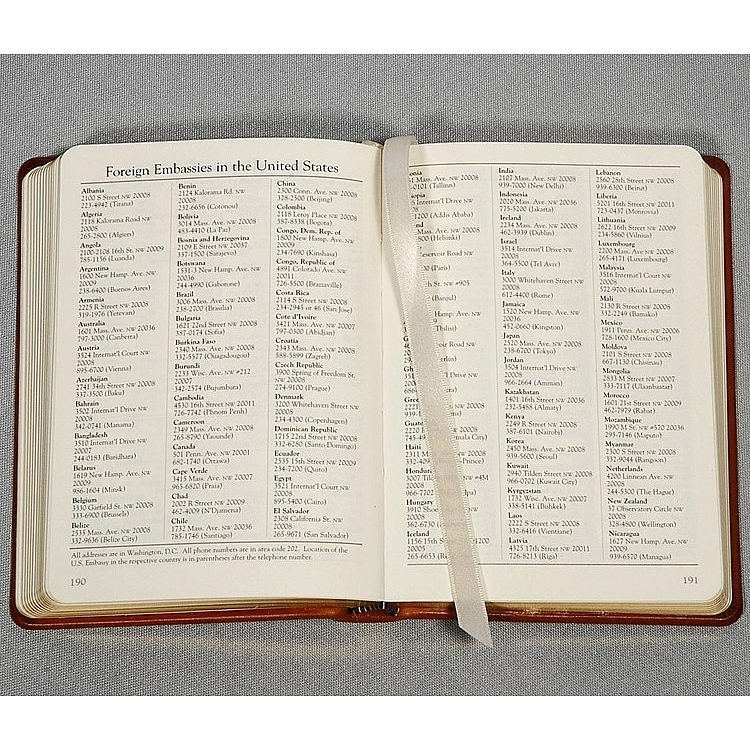 Foreign Embassies in the United States
Albania
2100 S Street NW 20008
223-4942 (Tirana)
Algeria
2118 Kalorama Road NW
20008
265-2800 (Algiers)
Angola
2100-2108 16th St. NW 20009
785-1156 (Luanda)
Argentina
1600 New Hamp. Ave. NW
20009
238-6400 (Buenos Aires)
Armenia
2225 R Street NW 20008
319-1976 (Yerevan)
Australia
1601 Mass. Ave. NW 20036
797-3000 (Canberra)
Austria
3524 Internat'l Court NW
20008
895-6700 (Vienna)
Azerbaijan
2741 34th Street NW 20008
337-3500 (Baku)
Bahrain
3502 Internat'l Drive NW
20008
342-0741 (Manama)
Bangladesh
3510 Internat'l Drive NW
20007
244-0183 (Baridhara)
Belarus
1619 New Hamp. Ave. NW
20009
986-1604 (Minsk)
Belgium
3330 Garfield St. NW 20008
333-6900 (Brussels)
Belize
2535 Mass. Ave. NW 20008
332-9636 (Belize City)
Benin
2124 Kalorama Rd. NW
20008
232-6656 (Cotonou)
Bolivia
3014 Mass. Ave. NW 20008
483-4410 (La Paz)
Bosnia and Herzegovina
2109 E Street NW 20037
337-1500 (Sarajevo)
Botswana
1531-3 New Hamp. Ave. NW
20036
244-4990 (Gaborone)
Brazil
3006 Mass. Ave. NW 20008
238-2700 (Brasilia)
Bulgaria
1621 22nd Street NW 20008
387-0174 (Sofia)
Burkina Faso
2340 Mass. Ave. NW 20008
332-5577 (Ouagadougou)
Burundi
2233 Wisc. Ave. NW #212
20007
342-2574 (Bujumbura)
Cambodia
4530 16th Street NW 20011
726-7742 (Phnom Penh)
Cameroon
2349 Mass. Ave. NW 20008
265-8790 (Yaounde)
Canada
501 Penn. Ave. NW 20001
682-1740 (Ottawa)
Cape Verde
3415 Mass. Ave. NW 20007
965-6820 (Praia)
Chad
2002 R Street NW 20009
462-4009 (N'Djamena)
Chile
1732 Mass. Ave. NW 20036
785-1746 (Santiago)
China
2300 Conn. Ave. NW 20008
328-2500 (Beijing)
Colombia
2118 Leroy Place NW 20008
387-8338 (Bogota)
Congo, Dem. Rep. of
1800 New Hamp. Ave. NW
20009
234-7690 (Kinshasa)
Congo, Republic of
4891 Colorado Ave. NW
20011
726-5500 (Brazzaville)
Costa Rica
2114 S Street NW 20008
234-2945 or 46 (San Jose)
Cote d'Ivoire
3421 Mass. Ave. NW 20007
797-0300 (Abidjan)
Croatia
2343 Mass. Ave. NW 20008
588-5899 (Zagreb)
Czech Republic
3900 Spring of Freedom St.
NW 20008
274-9100 (Prague)
Denmark
3200 Whitehaven Street NW
20008
234-4300 (Copenhagen)
Dominican Republic
1715 22nd Street NW 20008
332-6280 (Santo Domingo)
Ecuador
2535 15th Street NW 20009
234-7200 (Quito)
Egypt
3521 Internat'l Court NW
20008
895-5400 (Cairo)
El Salvador
2308 California St. NW
20008
265-9671 (San Salvador)
All addresses are in Washington, D.C. All phone numbers are in area code 202. Location of the
U.S. Embassy in the respective country is in parentheses after the telephone number.
190
-0101 (Tallinn)
Internat'l Drive NW
1200 (Addis Ababa)
(Helsinki)
Reservoir Road NW
(Paris)
St. NW #905
Hamp. Ave. NW
Road NW
Guatemala City)
Haiti
2311 Mass.
Honduras
3007 NW #4M
20008
966-7702
Hungary
3910 Shoe
362-6730
Iceland
1156 15th Street 1200
20005
265-6653
India
2107 Mass. Ave. NW 20008
939-7000 (New Delhi)
Indonesia
2020 Mass. Ave. NW 20036
775-5200 (Jakarta)
Ireland
2234 Mass. Ave. NW 20008
462-3939 (Dublin)
Israel
3514 Internat'l Drive NW
20008
364-5500 (Tel Aviv)
Italy
3000 Whitehaven Street NW
20008
612-4400 (Rome)
Jamaica
1520 New Hamp. Ave. NW
20036
452-0660 (Kingston)
Japan
2520 Mass. Ave. NW 20008
238-6700 (Tokyo)
Jordan
3504 Internat'l Drive NW
20008
966-2664 (Amman)
Kazakhstan
1401 16th Street NW 20036
232-5488 (Almaty)
Kenya
2249 R Street NW 20008
387-6101 (Nairobi)
Korea
2450 Mass. Ave. NW 20008
939-5600 (Seoul)
Kuwait
2940 Tilden Street NW 20008
966-0702 (Kuwait City)
Kyrgyzstan
1732 Wisc. Ave. NW 20007
338-5141 (Bishkek)
Laos
2222 S Street NW 20008
332-6416 (Vientiane)
Latvia
4325 17th Street NW 20011
726-8213 (Riga)
Lebanon
2560 28th Street NW 20008
939-6300 (Beirut)
Liberia
5201 16th Street NW 20011
723-0437 (Monrovia)
Lithuania
2622 16th Street NW 20009
234-5860 (Vilnius)
Luxembourg
2200 Mass. Ave. NW 20008
265-4171 (Luxembourg)
Malaysia
3516 Internat'l Court NW
20008
572-9700 (Kuala Lumpur)
Mali
2130 R Street NW 20008
332-2249 (Bamako)
Mexico
1911 Penn. Ave. NW 20006
728-1600 (Mexico City)
Moldova
2101 S Street NW 20008
667-1130 (Chisinau)
Mongolia
2833 M Street NW 20007
333-7117 (Ulaanbaatar)
Morocco
1601 21st Street NW 20009
462-7979 (Rabat)
Mozambique
1990 M St. NW #570 20036
293-7146 (Maputo)
Myanmar
2300 S Street NW 20008
332-9044 (Rangoon)
Netherlands
4200 Linnean Ave. NW
20008
244-5300 (The Hague)
New Zealand
37 Observatory Circle NW
20008
328-4800 (Wellington)
Nicaragua
1627 New Hamp. Ave. NW
20009
939-6570 (Managua)
191